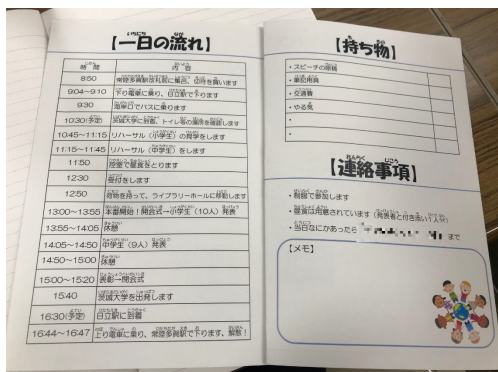 【一日の流れ】
時間 内容
8:50 常陸多賀駅改札前に集合、切符を買います
9:04~9:10 下りの電車に乗り、日立駅で下ります
9:30 海岸口でバスに乗ります
10:30(予定) 茨城大学に到着、トイレ等の場所を確認します
10:45~11:15 リハーサル(小学生)の見学をします
11:15~11:45 リハーサル(中学生)をします
11:50 控室で昼食をとります
12:30 受付をします
12:50 荷物を持って、ライブラリーホールに移動します
13:00~13:55 本番開始!開会式→小学生(10人)発表
13:55~14:05 休憩
14:05~14:50 中学生(9人)発表
14:50~15:00 休憩
15:00~15:20 表彰→閉会式
15:40 茨城大学を出発します
16:30(予定) 日立駅に到着
16:44~16:47 上り電車に乗り、常陸多賀駅で下ります、解散!
【持ち物】
・スピーチの原稿
・筆記用具
・交通費
・やる気
・
・
【連絡事項】
・制服で参加します
・昼食は用意されています(発表者と付き添い1人分)
・当日なにかあったら まで
【メモ】